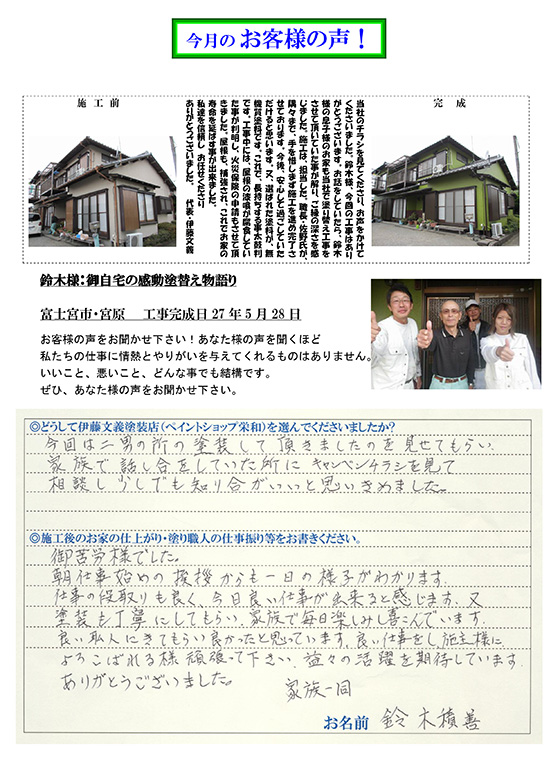 今月の お客様の声！
施工前
完成
当社のチラシを見てくださり、お声をかけて
くださいました、鈴木様、今回の工事はあり
がとうございます。お話をしていたら、鈴木
様の息子様のお家も当社で塗り替え工事を
させて頂いていた事が解り、ご縁の深さを感
じました。施工は、担当した、職長・佐野氏が、
隅々まで、手を惜します施工を進め完了さ
せております。今後、安心して過ごしていた
だけると思います。又、選ばれた塗料が、無
機質塗料です。これで、長持ちする事太鼓判
です。工事中には、屋根の漆喰が腐食してい
た事が判明し、火災保険の申請もさせて頂
きました。屋根も、補強され、これでお家の
寿命を延ばす事が出来ました。
私達を信頼し お任せくださり
ありがとうございました。 代表・伊藤文義
鈴木様：御自宅の感動塗替え物語り
富士宮市・宮原 工事完成日 27 年 5 月 28 日
お客様の声をお聞かせ下さい！あなた様の声を聞くほど
私たちの仕事に情熱とやりがいを与えてくれるものはありません。
いいこと、悪いこと、どんな事でも結構です。
ぜひ、あなた様の声をお聞かせ下さい。
◎どうして伊藤文義塗装店（ペイントショップ栄和）を選んでくださいましたか？
今回は二男の所の塗装して頂きましたのを見せてもらい
家族で話し合をしていた所に キャンペンチラシを見て
相談し 少しでも知り合がいいと思いきめました。
◎施工後のお家の仕上がり・塗り職人の仕事振り等をお書きください。
御苦労様でした。
朝仕事始めの挨拶からも一日の様子がわかります。
仕事の段取りも良く、今日良い仕事が出来ると感じます。又
塗装も丁寧にしてもらい、家族で毎日楽しみ喜こんでいます。
良い職人にきてもらい良かったと思っています。良い仕事をし、施主様に
よろこばれる様頑張って下さい、益々の活躍を期待しています。
ありがとうございました。
家族一同
お名前 鈴木積善